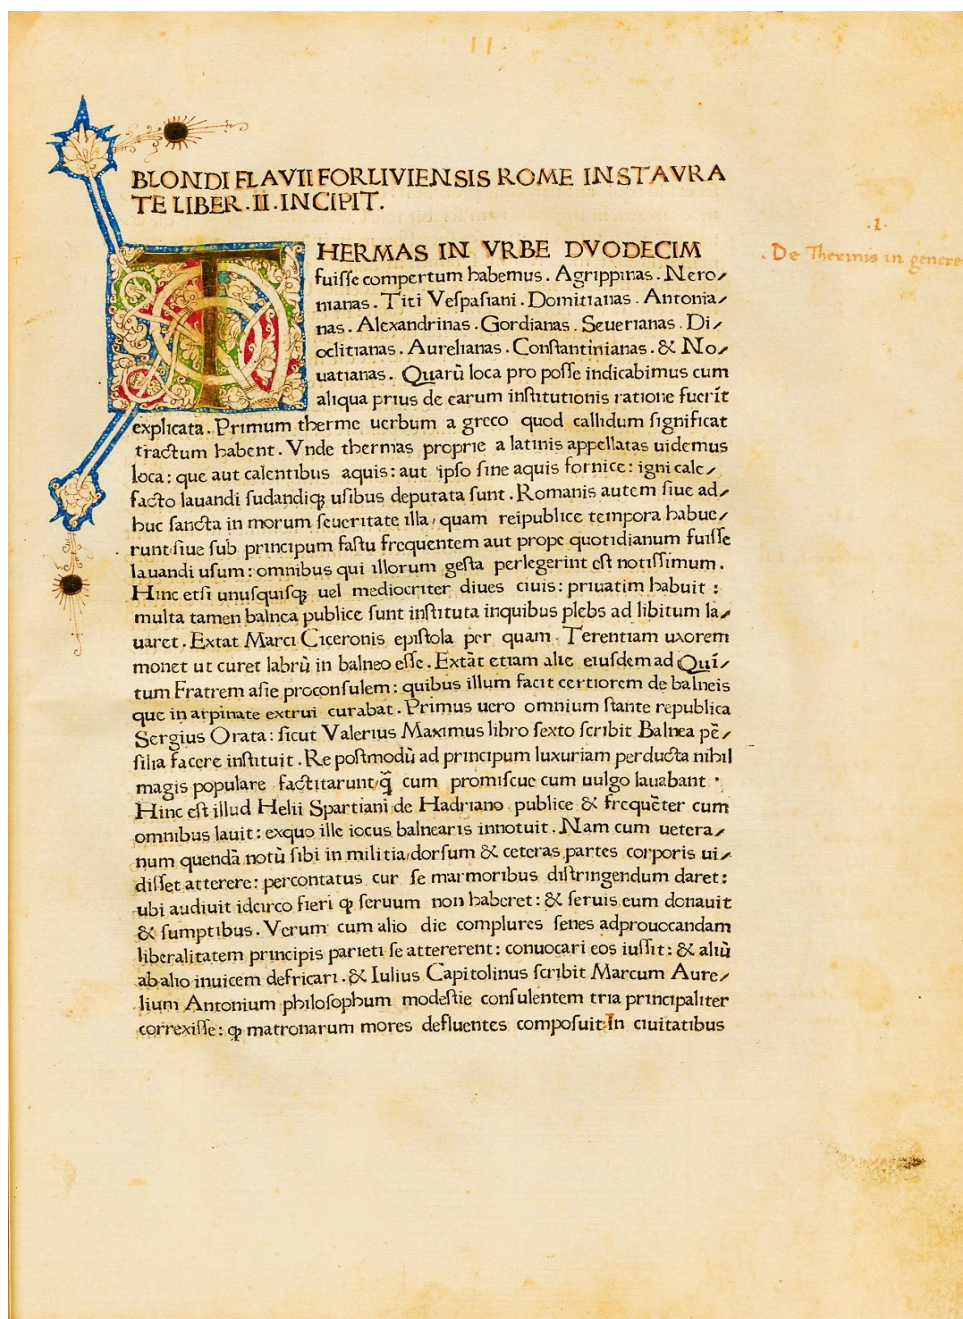 II.
BLONDI FLAVII FORLIVIENSIS ROME INSTAVRA
TE LIBER .II. INCIPIT.
THERMAS IN VRBE DVODECIM
.I.
. De Thermis in genere
fuiſſe compertum habemus . Agrippinas . Nero/
nianas . Titi Veſpaſiani . Domitianas . Antonia/
nas . Alexandrinas . Gordianas . Seuerianas . Di/
oclitianas . Aurelianas . Conſtantinianas . & No/
uatianas . Quarũ loca pro poſſe indicabimus cum
aliqua prius de earum inſtitutionis ratione fuerĩt
explicata . Primum therme uerbum a greco quod callidum ſignificat
tractum habent . Vnde thermas proprie a latinis appellatas uidemus
loca : que aut calentibus aquis : aut ipſo ſine aquis fornice : igni cale/
facto lauandi ſudandiqꝫ uſibus deputata ſunt . Romanis autem ſiue ad/
huc ſancta in morum ſeueritate illa / quam reipublice tempora habue/
runt ſiue ſub principum faſtu frequentem aut prope quotidianum fuiſſe
lauandi uſum : omnibus qui illorum geſta perlegerint eſt notiſſimum .
Hinc etſi unuſquiſqꝫ uel mediocriter diues ciuis : priuatim habuit :
multa tamen balnea publice ſunt inſtituta inquibus plebs ad libitum la/
uaret . Extat Marci Ciceronis epiſtola per quam . Terentiam uxorem
monet ut curet labrũ in balneo eſſe . Extãt etiam alie eiuſdem ad Quĩ/
tum Fratrem aſie proconſulem : quibus illum facit certiorem de balneis
que in arpinate extrui curabat . Primus uero omnium ſtante republica
Sergius Orata : ſicut Valerius Maximus libro ſexto ſcribit Balnea pẽ/
ſilia facere inſtituit . Re poſtmodũ ad principum luxuriam perducta nihil
magis populare factitarunt / q̃ cum promiſcue cum uulgo lauabant .
Hinc eſt illud Helii Spartiani de Hadriano publice & frequẽter cum
omnibus lauit : exquo ille iocus balnearis innotuit . Nam cum uetera/
num quendã notũ ſibi in militia / dorſum & ceteras partes corporis ui/
diſſet atterere : percontatus cur ſe marmoribus diſtringendum daret :
ubi audiuit idcirco fieri ꝙ ſeruum non haberet : & ſeruis eum donauit
& ſumptibus . Verum cum alio die complures ſenes adprouocandam
liberalitatem principis parieti ſe attererent : conuocari eos iuſſit : & aliũ
abalio inuicem defricari . & Iulius Capitolinus ſcribit Marcum Aure/
lium Antonium philoſophum modeſtie conſulentem tria principaliter
correxiſſe : ꝙ matronarum mores defluentes compoſuit In ciuitatibus